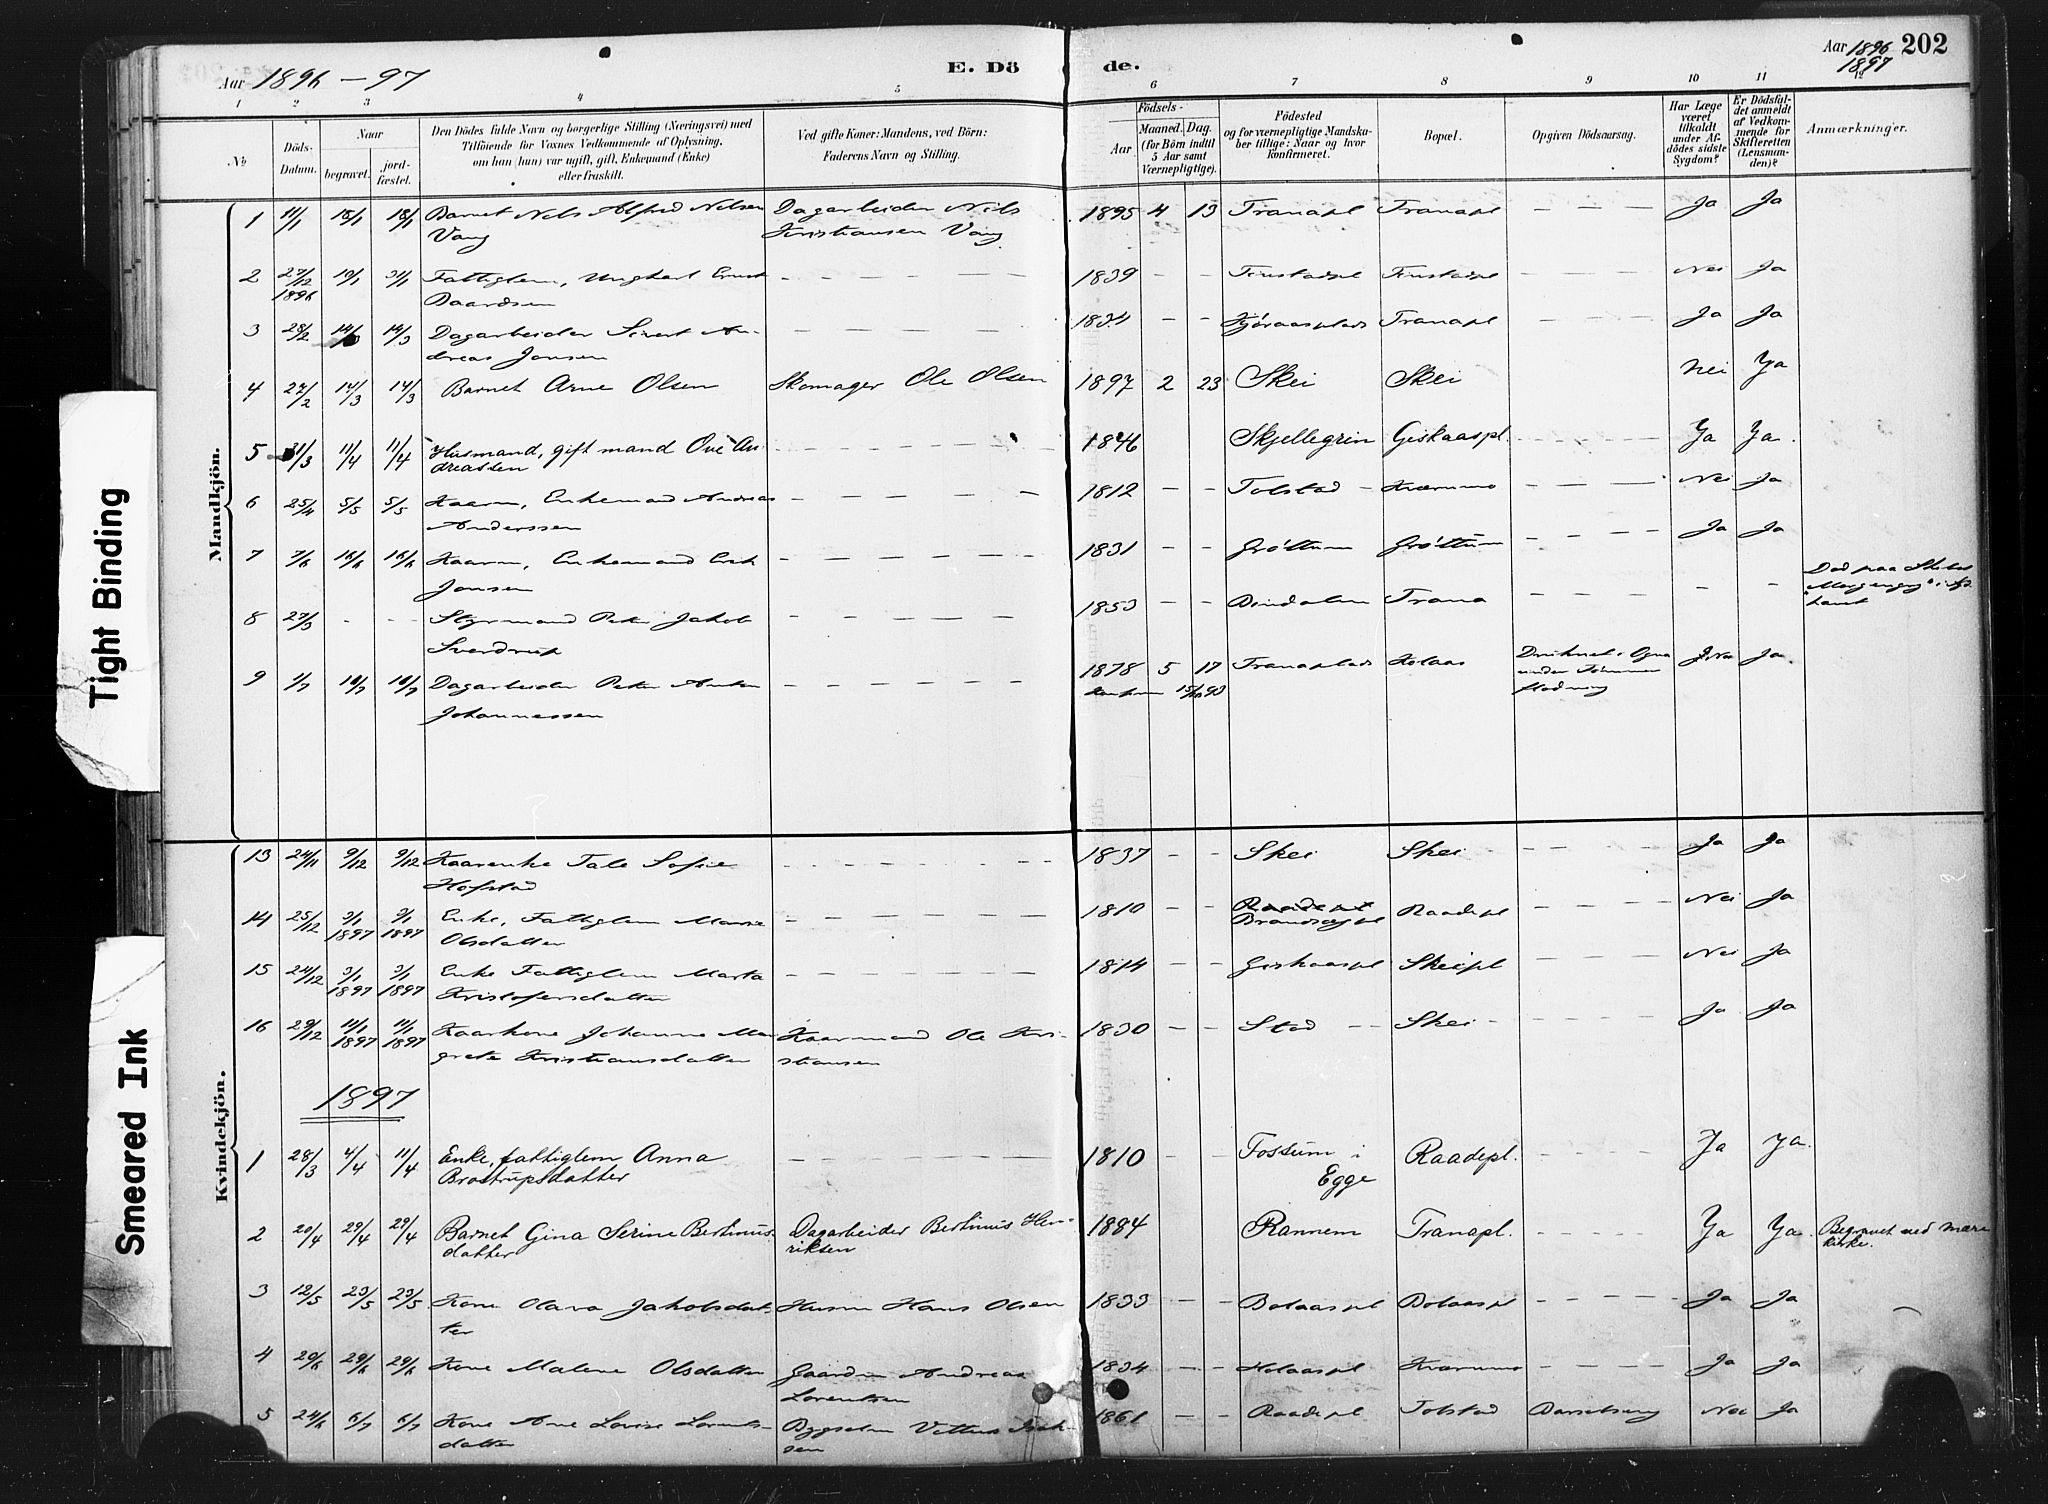 Aar 1896 - 97
E. Dö de.
Aar 1896 1897 202
1 2 3 4 5 6 7 8 9 10 11 12
No
Döds-Datum.
Naar
begravet. jord-fæstet.
Den Dödes fulde Navn og borgerlige Stilling (Næringsvei) med
Tilföiende for Voxnes Vedkommende af Oplysning,
om han (hun) var ugift, gift, Enkemand (Enke)
eller fraskilt.
Ved gifte Koner: Mandens, ved Börn:
Faderens Navn og Stilling.
Födsels-
Aar Maaned. Dag.
(for Börn indtil 5 Aar samt Værnepligtige).
Födested
og for værnepligtige Mandska-
ber tillige: Naar og hvor
konfirmeret.
Bopæl.
Opgiven Dödsaarsag.
Har Læge været tilkaldt under Af-dödes sidste Sygdom?
Er Dödsfal-det anmeldt af Vedkom-mende for Skifteretten (Lensman-den)?
Anmærkninger.
Mandkjön.
1 11/1 18/1 18/1 Barnet Nels Alfred Nelsen Dagarbeider Nils 1895 4 13 Tranapl Tranapl - - - Ja Ja
Vang Kristiansen Vang.
2 27/12 1896 19/1 31/1 Fattiglem, Ungkarl - - - 1839 - - Finstadpl Finstadpl - - - Nei Ja
Baardsen
3 28/2 14/3 14/3 Dagarbeider Sivert An- - - - 1834 - - Tranapl - - - Ja Ja
dreas Jonsen
4 27/2 14/3 14/3 Barnet Arne Olsen Skomager Ole Olsen 1897 2 23 Skei Skei Nei Ja
5 31/3 11/4 11/4 Husmand, gift mand Ove An- - - - 1846 Skjellegrin Giskaaspl. - - - Ja Ja.
dreassen
6 25/4 5/5 5/5 Kaarm, Enkemand Andreas - - - 1812 - - Tolstad - Kværnmo - - - Nei Ja
Anderssen
7 7/6 16/6 16/6 Kaarm, Enkemand Erik - - - 1831 - - Gröttum Gröttum - - - Ja Ja
Jonsen
8 27/3 - - Styrmand Peter Jakob - - - 1853 - - Bindalen Trana - - - - - Död paa
Sverdrup
9 10/7 10/7 Dagarbeider Peter Anton - - - 1878 5 17 Tranaplads Holaas Druknet i Ogna Ja
Johannessen under Tömmer
flödning
Kvindekjön.
13 24/11 9/12 9/12 Kaarenke Tale Sofie - - - 1837 - - Skei Skei - - - Ja Ja
Hofstad
14 25/12 3/1 1897 3/1 1897 Enke, Fattiglem Marie - - - 1810 - - Raadepl - - - Nei Ja
Olsdatter
15 24/12 3/1 1897 3/1 1897 Enke Fattiglem Marta - - - 1814 - - Giskaaspl Skeipl - - - Nei Ja
Kristofersdatter
16 29/12 11/1 1897 11/1 1897 Kaarkone Johanne Mar- Kaarmand Ole Kri- 1830 - - Stod - Skei - - - - Ja Ja
grete Kristiansdatter stiansen
1897
1 28/3 4/4 11/4 Enke, fattiglem Anna - - - 1810 - - Fossum i Raadepl. - - - Ja Ja.
Brostrupsdatter Egge
2 20/4 29/4 29/4 Barnet Gina Serine Bertinus- Dagarbeider Bertinus Hen- 1884 Rannem Tranapl. Ja Ja. Begravet ved Mære
datter riksen kirke.
3 12/5 23/5 23/5 Kone Olava Jakobsdat- Husm Hans Olsen 1833 - - Bolaaspl Bolaaspl - - - Ja Ja
ter
4 20/6 29/6 29/6 Kone Malene Olsdatter Gaardm Andreas 1834 - - Holaaspl Kværnmo - - - Ja Ja
Lorentsen
5 24/6 6/7 6/7 Kone Ane Lovise Lorents- 1861 - - Raadepl Tolstad Barselseng Nei Ja
datter
Tight Binding
Smeared Ink